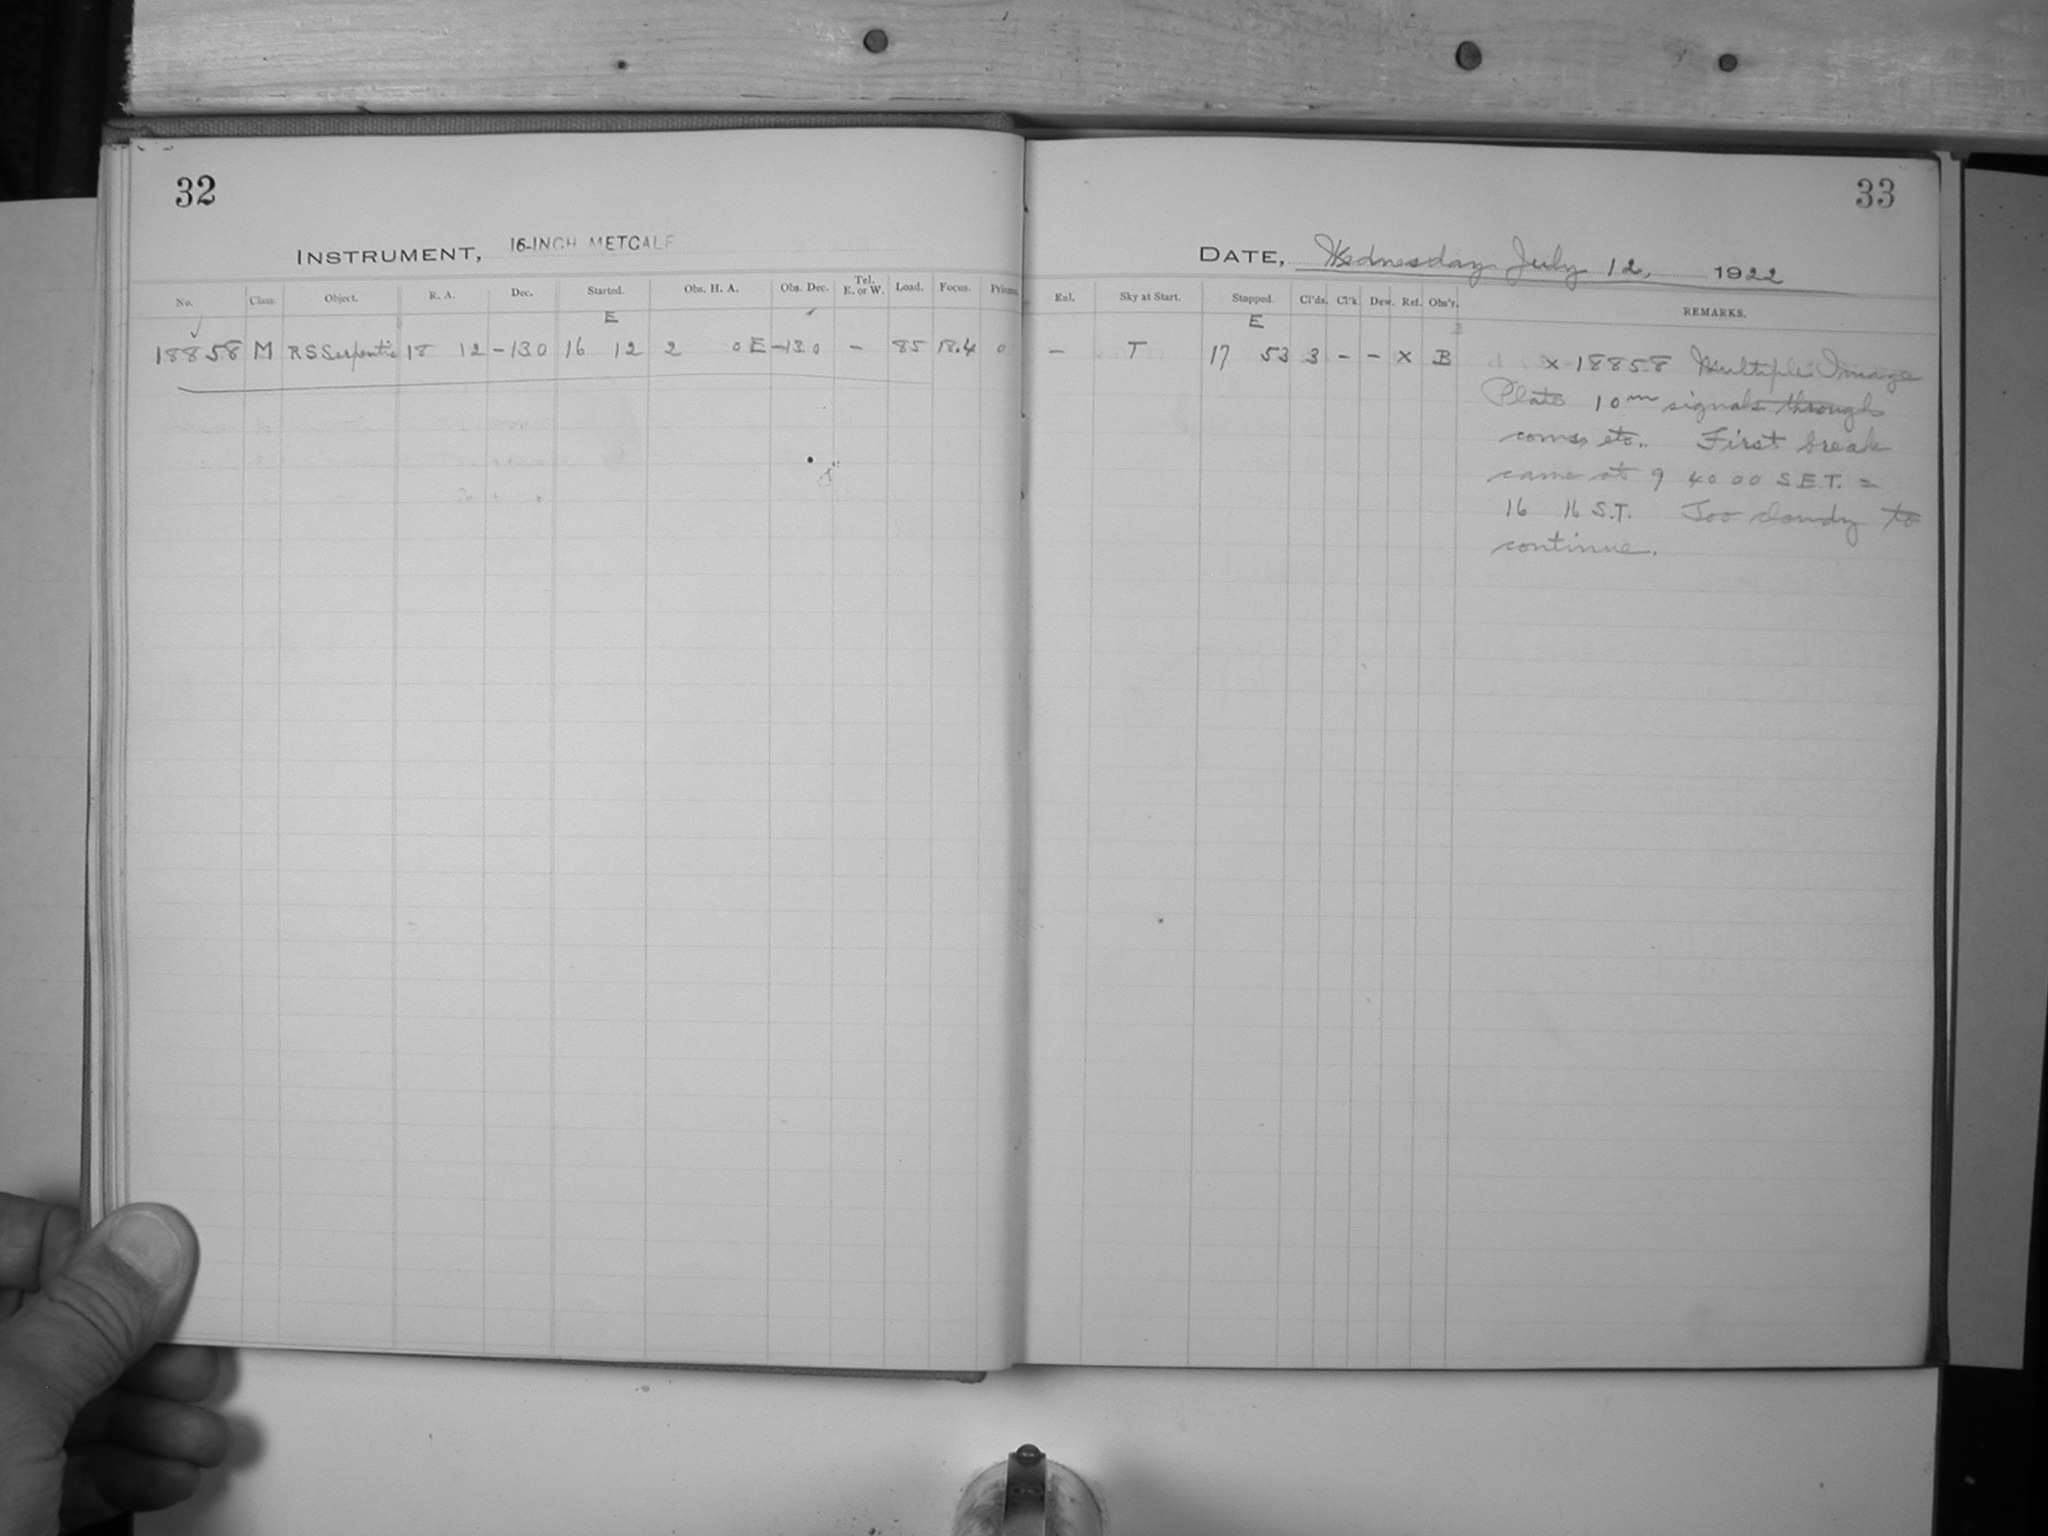 32
INSTRUMENT, 16-INCH METCALF
No. Class. Object. R. A. Dec. Started. Obs. H. A. Obs. Dec. Tel. E. or W. Load. Focus. Prisms.
E
18858 M RS Serpentis 18 12 -13.0 16 12 2 0 E -13.0 - 85 18.4 0
33
DATE, Wednesday July 12, 1922
Enl. Sky at Start. Stopped. Cl'ds. Cl'k. Dew. Ref. Obs'r. REMARKS.
E
- T 17 53 3 - - x B
x 18858 Multiple Image
Plate 10m signals through
coms, etc. First break
came at 9 40 00 S.E.T. =
16 16 S.T. Too cloudy to
continue.